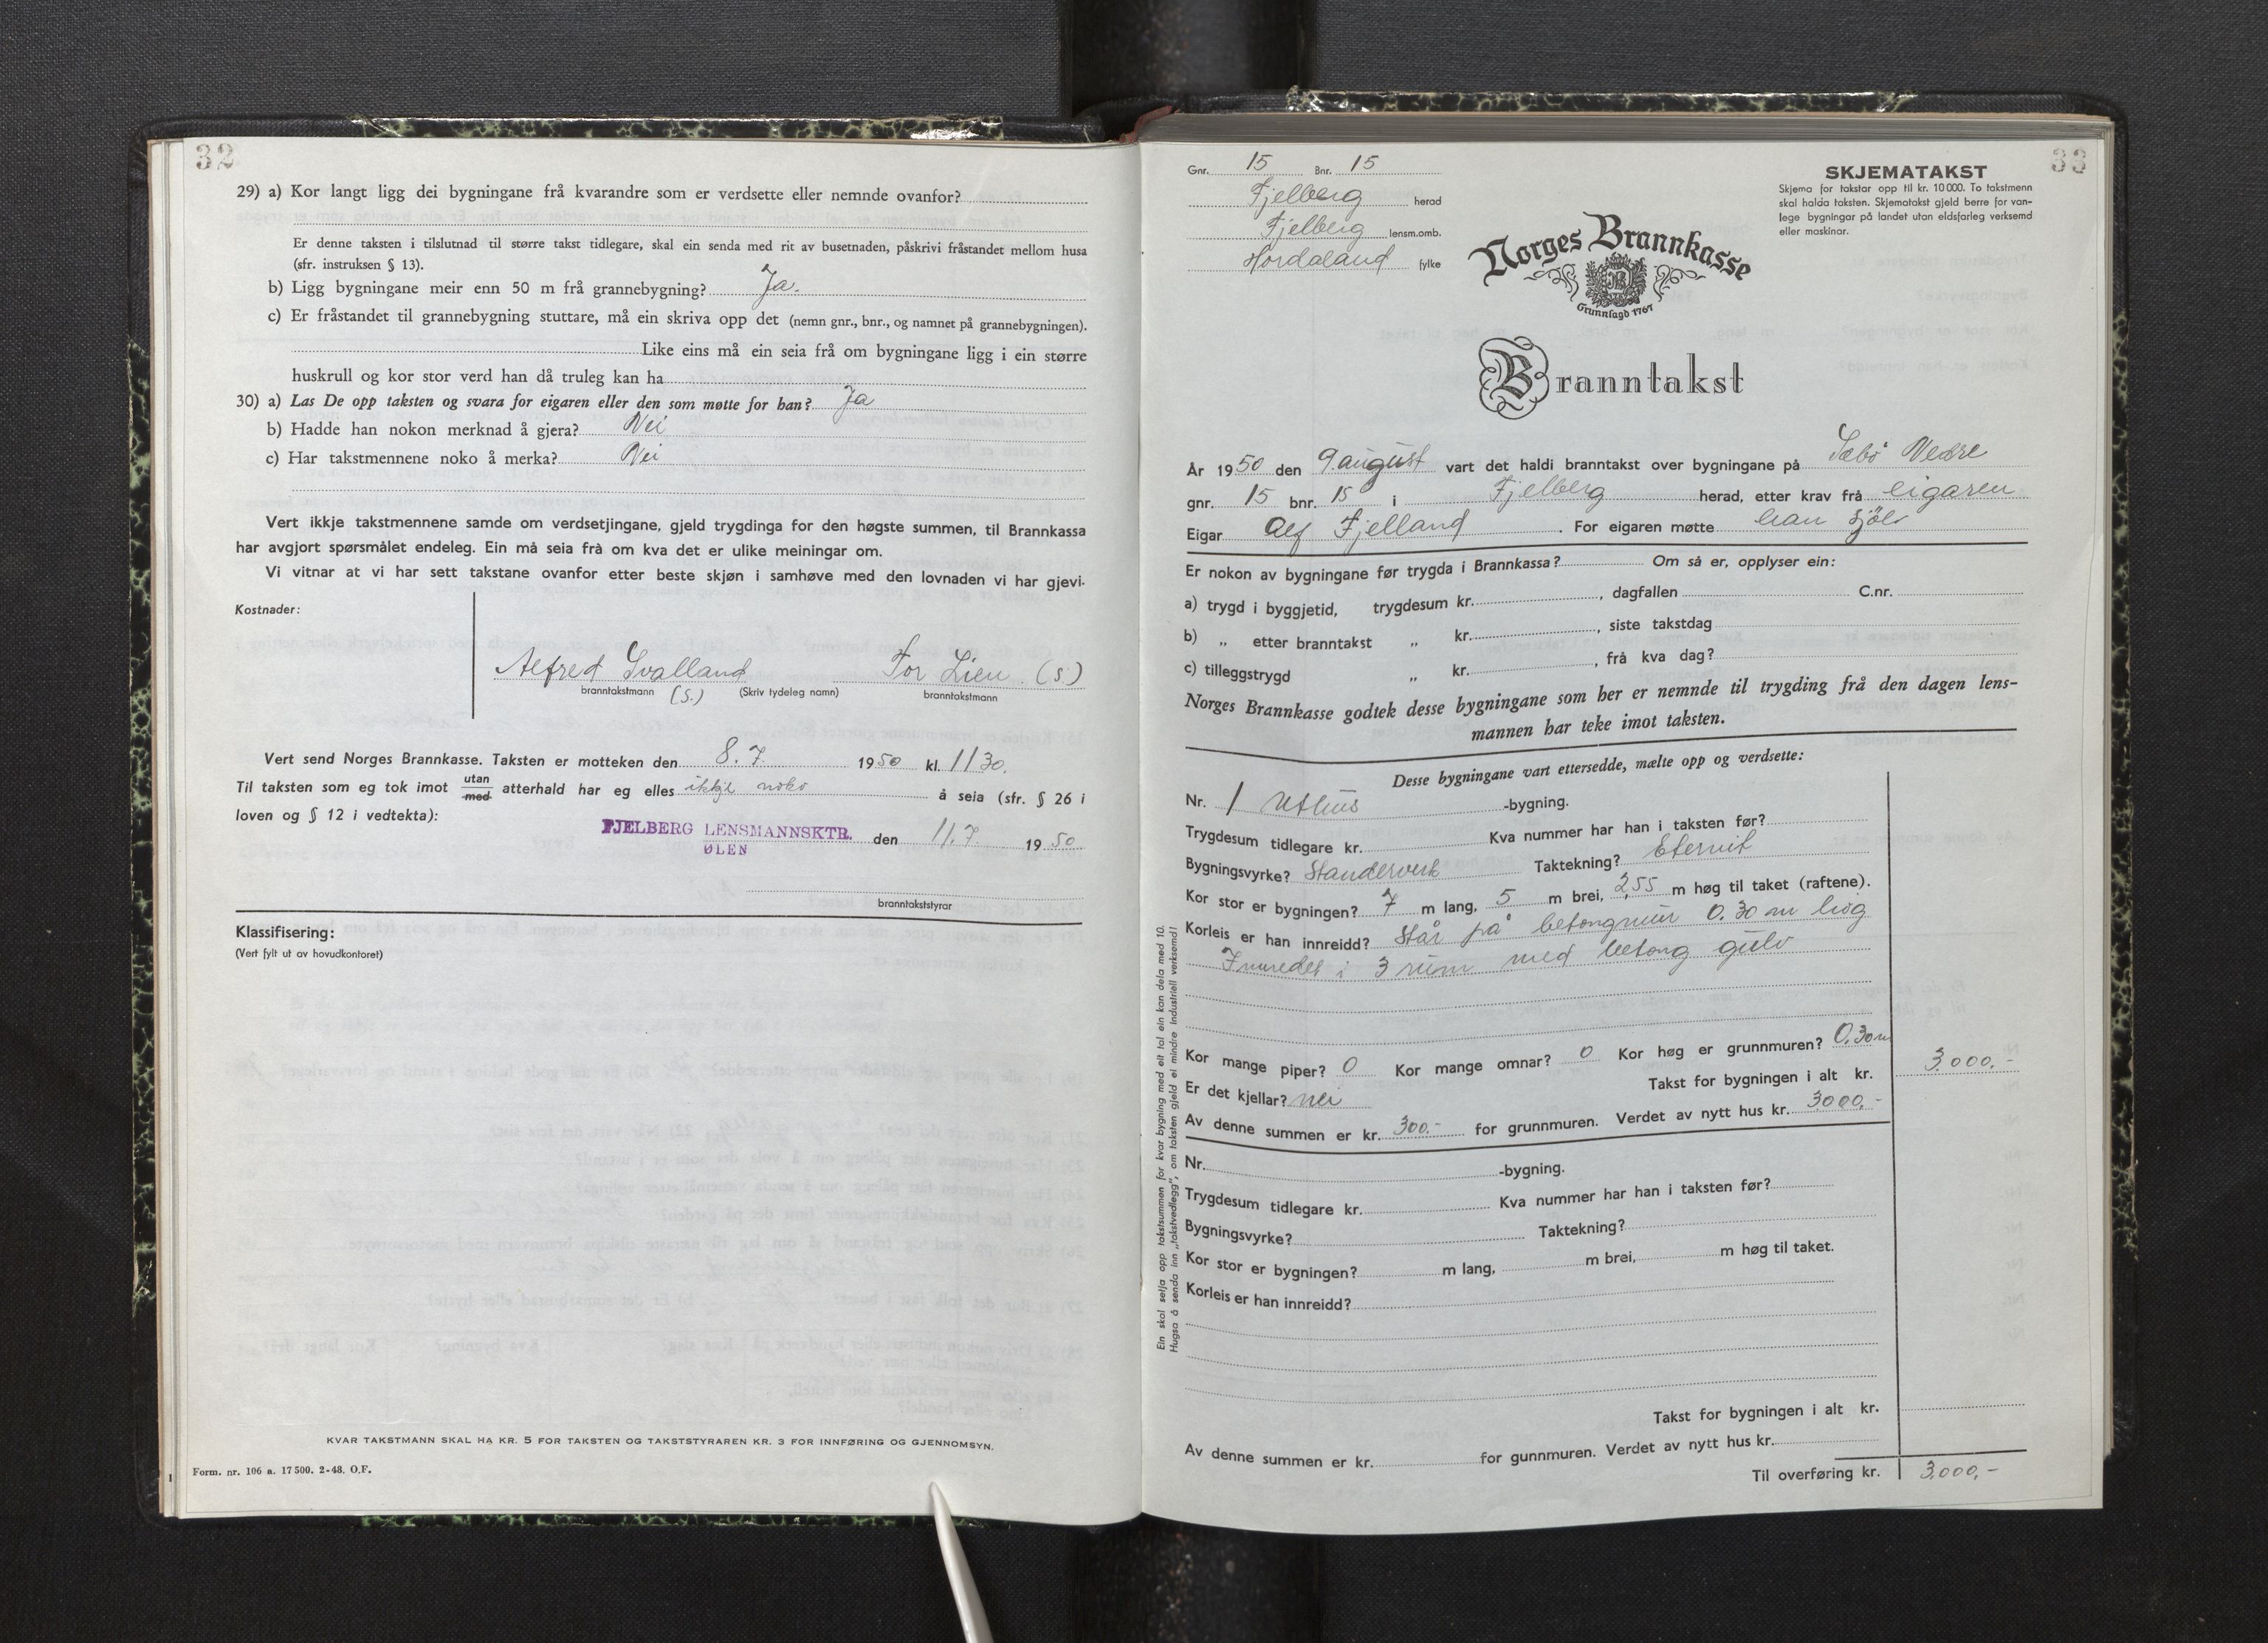 32
29) a) Kor langt ligg dei bygningane frå kvarandre som er verdsette eller nemnde ovanfor?
Er denne taksten i tilslutnad til større takst tidlegare, skal ein senda med rit av busetnaden, påskrivi fråstandet mellom husa
(sfr. instruksen § 13).
b) Ligg bygningane meir enn 50 m frå grannebygning? Ja.
c) Er fråstandet til grannebygning stuttare, må ein skriva opp det (nemn gnr., bnr., og namnet på grannebygningen).
Like eins må ein seia frå om bygningane ligg i ein større
huskrull og kor stor verd han då truleg kan ha
30) a) Las De opp taksten og svara for eigaren eller den som møtte for han? Ja
b) Hadde han nokon merknad å gjera? Nei
c) Har takstmennene noko å merka? Nei
Vert ikkje takstmennene samde om verdsetjingane, gjeld trygdinga for den høgste summen, til Brannkassa
har avgjort spørsmålet endeleg. Ein må seia frå om kva det er ulike meiningar om.
Vi vitnar at vi har sett takstane ovanfor etter beste skjøn i samhøve med den lovnaden vi har gjevi.
Kostnader:
Alfred Svalland Tor Lien (S)
branntakstmann (S.) (Skriv tydeleg namn) branntakstmann
Vert send Norges Brannkasse. Taksten er motteken den 8.7. 1950 kl. 1130.
Til taksten som eg tok imot utan/med atterhald har eg elles ikkje noko å seia (sfr. § 26 i
loven og § 12 i vedtekta):
FJELBERG LENSMANNSKTR. den 11.7 1950
ØLEN
branntakststyrar
Klassifisering:
(Vert fylt ut av hovudkontoret)
KVAR TAKSTMANN SKAL HA KR. 5 FOR TAKSTEN OG TAKSTSTYRAREN KR. 3 FOR INNFØRING OG GJENNOMSYN.
Form. nr. 106 a. 17500. 2-48. O.F.
33
Gnr. 15 Bnr. 15
Fjelberg herad
Fjelberg lensm.omb.
Hordaland fylke
SKJEMATAKST
Skjema for takstar opp til kr. 10 000. To takstmenn
skal halda taksten. Skjematakst gjeld berre for van-
lege bygningar på landet utan eldsfarleg verksemd
eller maskinar.
Norges Brannkasse
Grunnlagd 1767
Branntakst
År 1950 den 9. august vart det haldi branntakst over bygningane på Sæbö Nedre
gnr. 15 bnr. 15 i Fjelberg herad, etter krav frå eigaren
Eigar Alf Fjelland. For eigaren møtte han sjölv
Er nokon av bygningane før trygda i Brannkassa? Om så er, opplyser ein:
a) trygd i byggjetid, trygdesum kr. , dagfallen C.nr.
b) „ etter branntakst „ kr. , siste takstdag
c) tilleggstrygd „ kr. , frå kva dag?
Norges Brannkasse godtek desse bygningane som her er nemnde til trygding frå den dagen lens-
mannen har teke imot taksten.
Desse bygningane vart ettersedde, mælte opp og verdsette:
Nr. 1 Uthus -bygning.
Trygdesum tidlegare kr. Kva nummer har han i taksten før?
Bygningsvyrke? Standerverk Taktekning? Eternit
Kor stor er bygningen? 7 m lang, 5 m brei, 2,55 m høg til taket (raftene).
Korleis er han innreidd? Står på betongmur 0.30 m høg
Innredet i 3 rum med betong gulv
Kor mange piper? 0 Kor mange omnar? 0 Kor høg er grunnmuren? 0,30 m
Er det kjellar? nei Takst for bygningen i alt kr. 3.000,-
Av denne summen er kr. 300.- for grunnmuren. Verdet av nytt hus kr. 3000,-
Nr. -bygning.
Trygdesum tidlegare kr. Kva nummer har han i taksten før?
Bygningsvyrke? Taktekning?
Kor stor er bygningen? m lang, m brei, m høg til taket.
Korleis er han innreidd?
Takst for bygningen i alt kr.
Av denne summen er kr. for gunnmuren. Verdet av nytt hus kr.
Til overføring kr. 3.000,-
Ein skal setja opp takstsummen for kvar bygning med eit tal ein kan dela med 10.
Hugsa å senda inn „takstvedlegg“, om taksten gjeld ei mindre industriell verksemd!